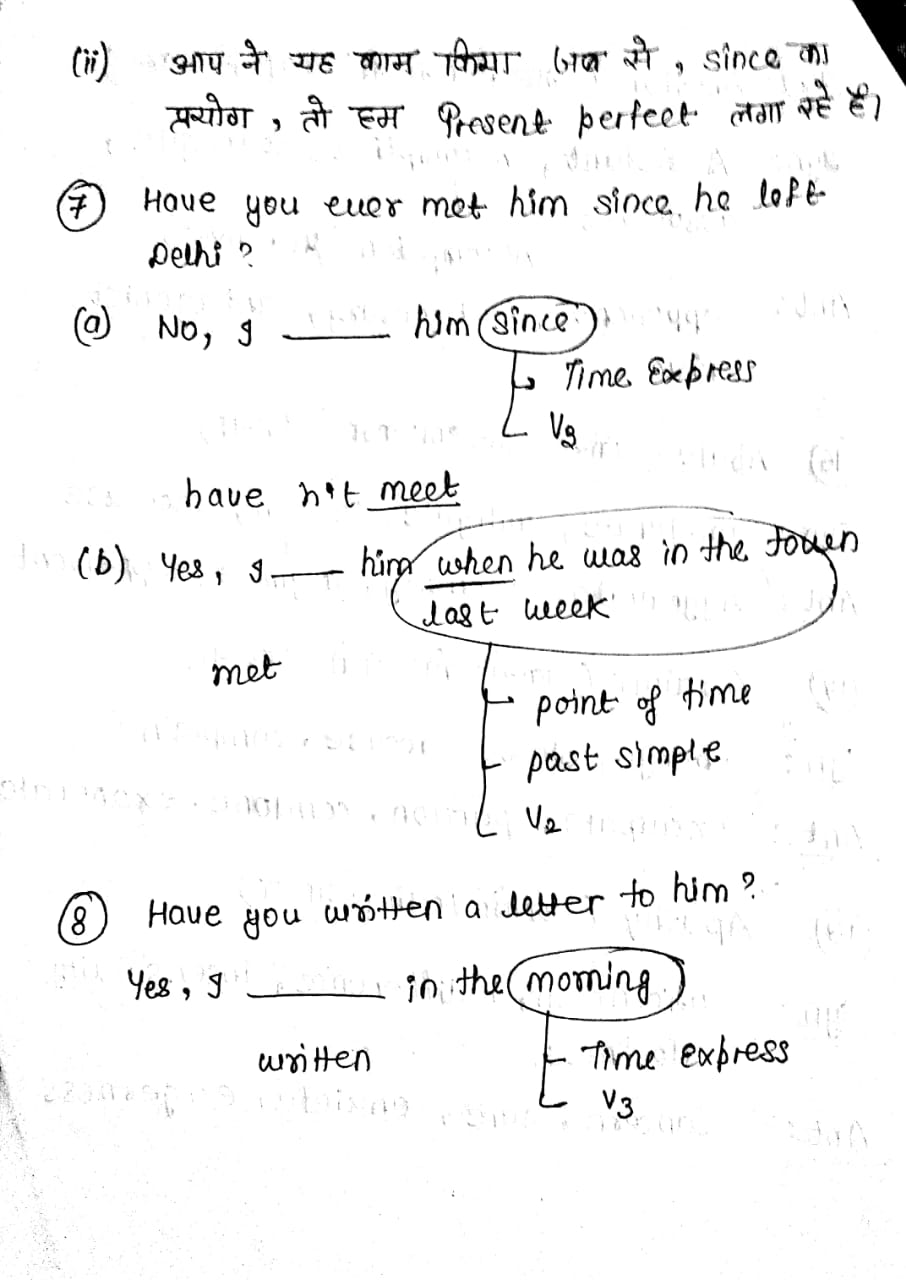 (ii) आप ने यह काम किया जब से, since का
प्रयोग, तो हम Present perfect लगा रहे हैं।
⑦ Have you ever met him since he left
Delhi?
(a) No, I ____ him since
Time Express
V3
have n't meet
(b) Yes, I ____ him when he was in the town
last week
met
point of time
past simple
V2
⑧ Have you written a letter to him?
Yes, I ____ in the morning
written
Time express
V3